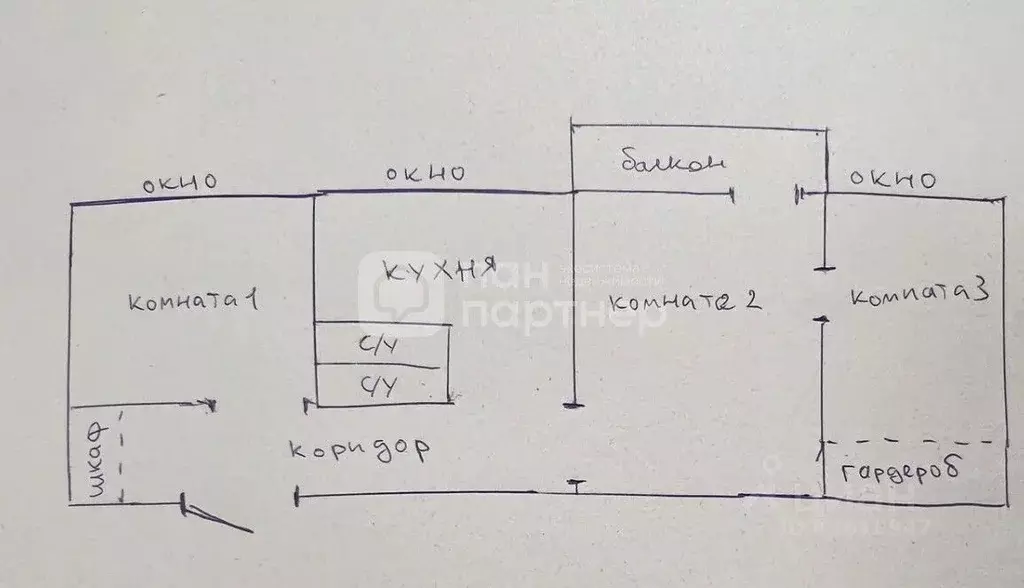 окно
окно
балкон
окно
кухня
комната 1
комната 2
комната 3
с/у
с/у
шкаф
коридор
гардероб
пан
партнер